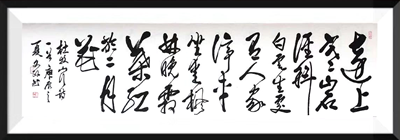 遠上
寒山石
徑斜
白雲生處
有人家
停車
坐愛楓
林晚霜
葉紅
於二月
花
杜牧山行詩
一首庚辰之
夏